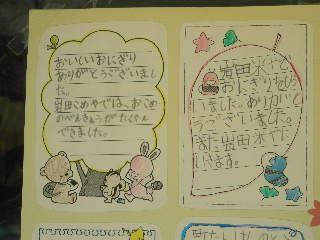 おいしいおにぎり
ありがとうございまし
た。
岩田こめやでは、おこめ
のべんきょうがたくさん
できました。
岩田米やで
おにぎりをもら
いました。ありがと
うございました。
また岩田米やに
いきます。